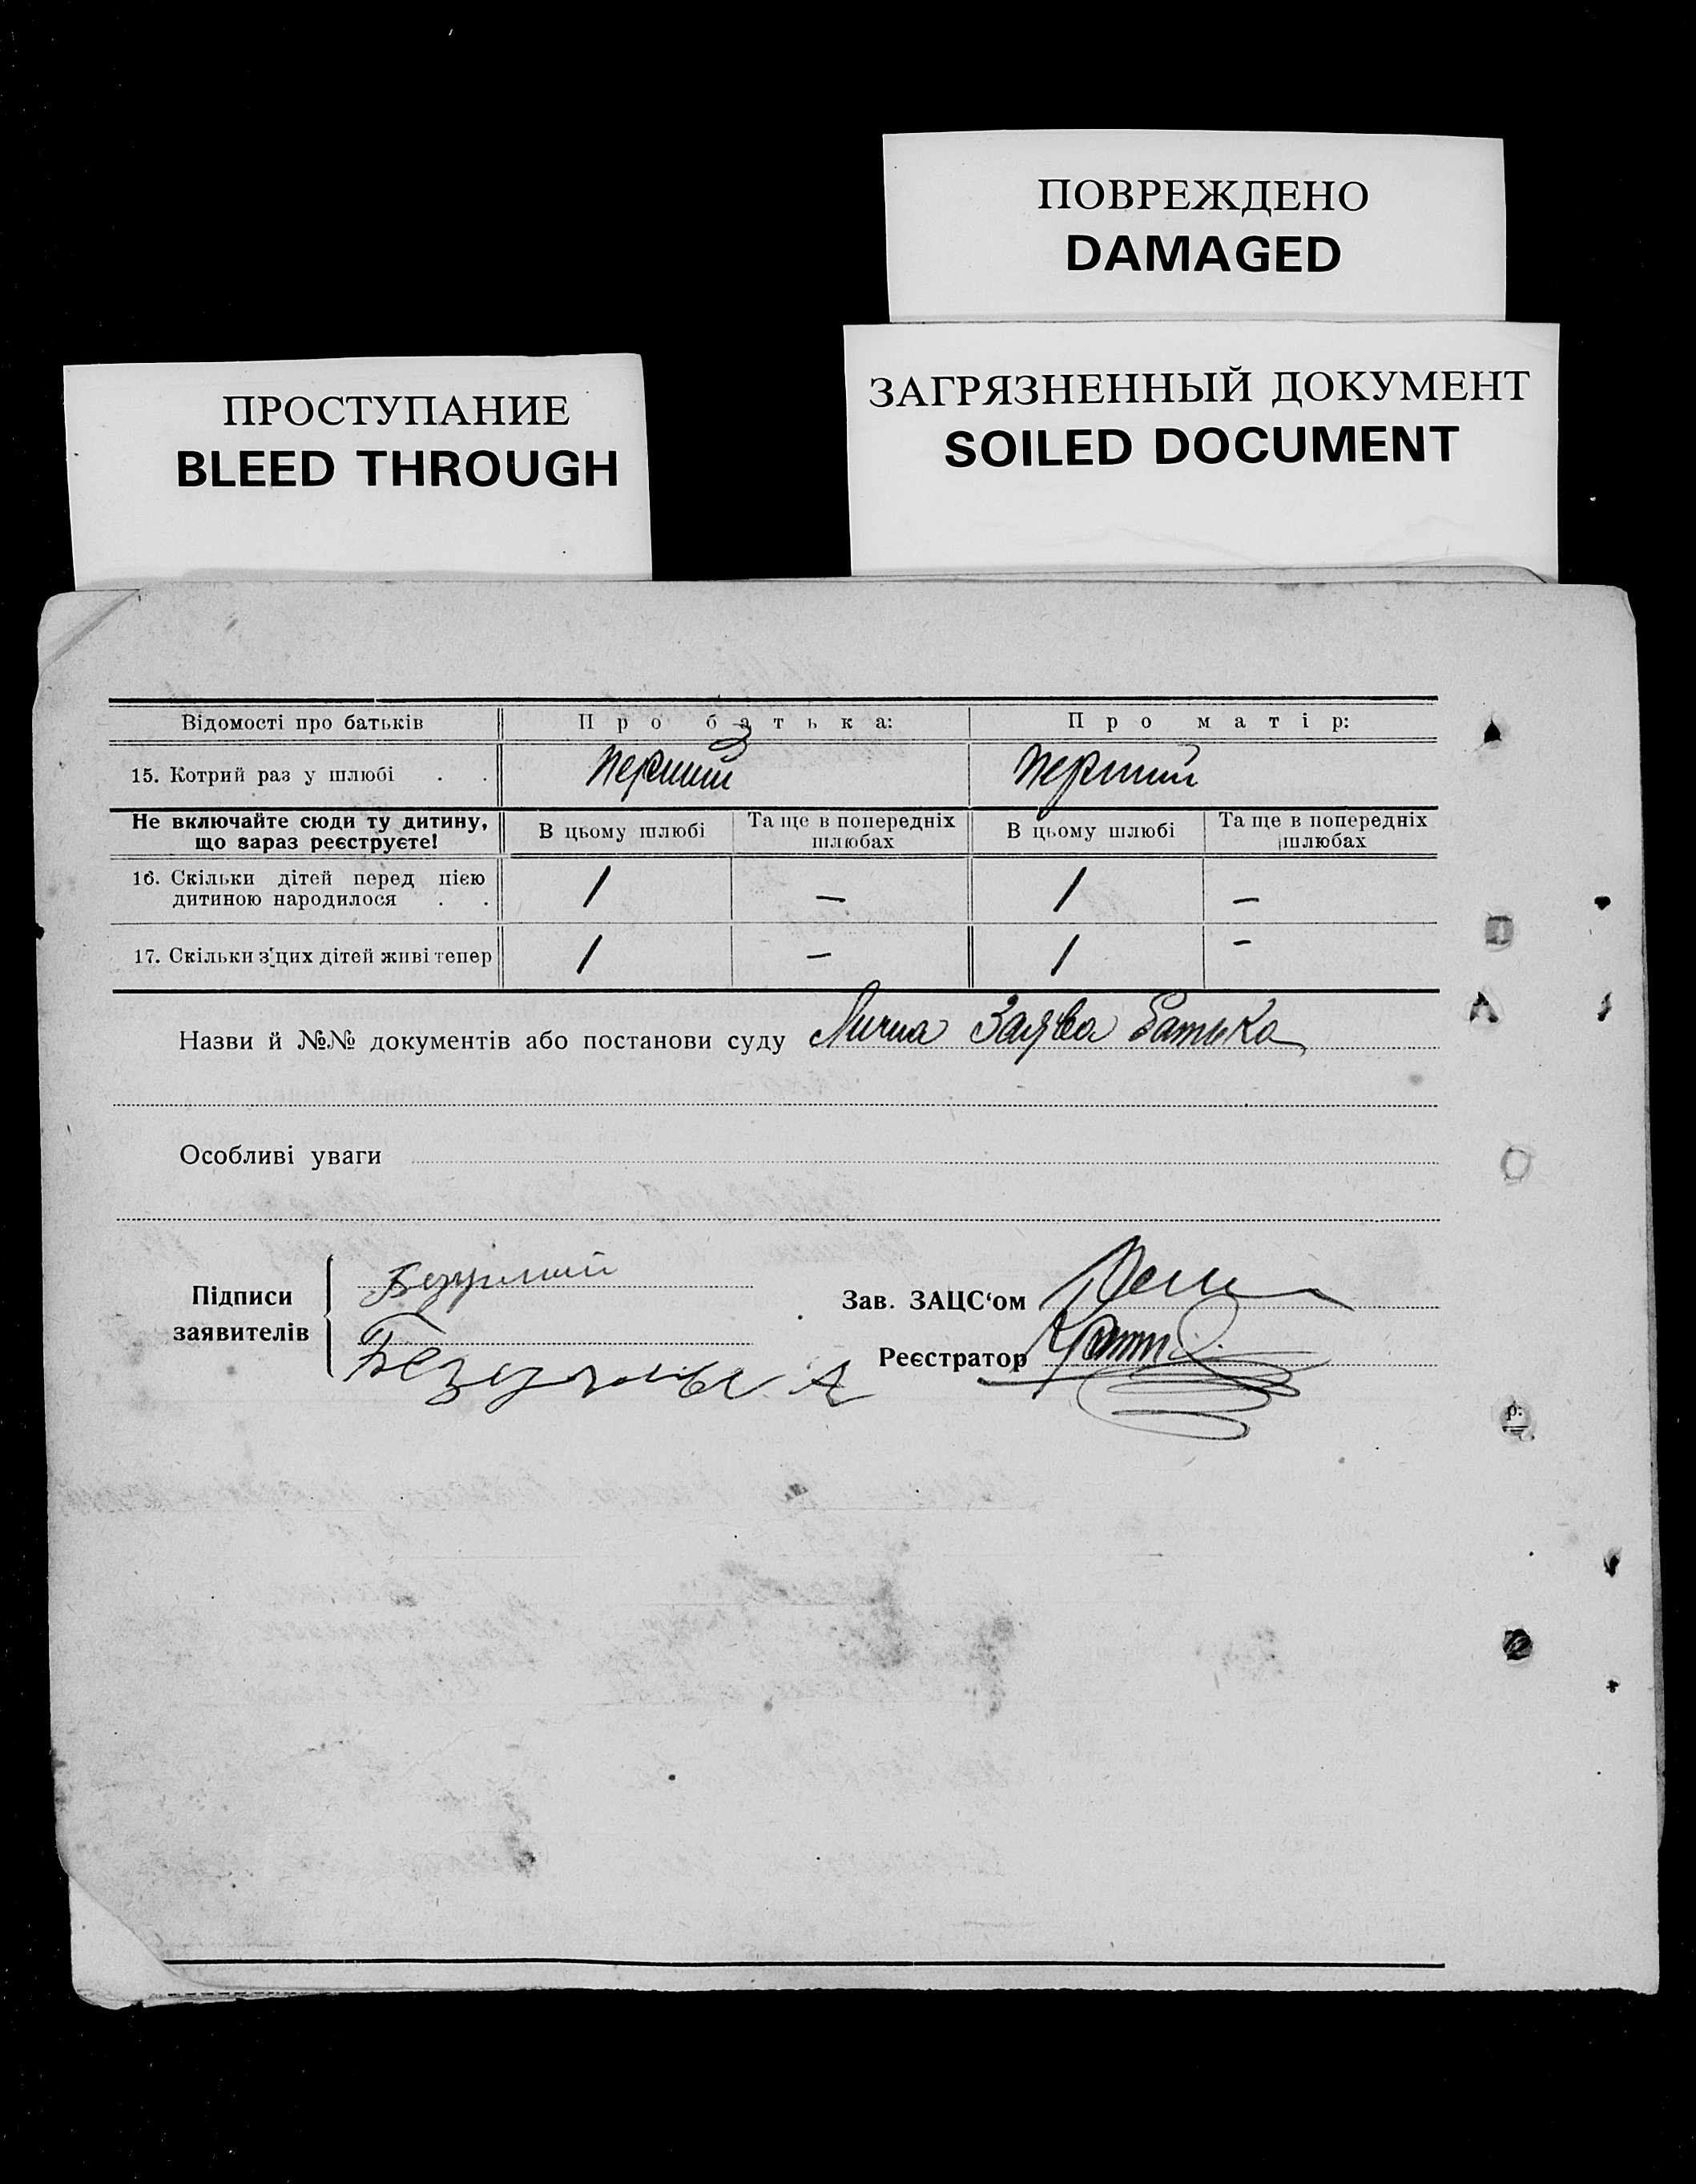 ПОВРЕЖДЕНО
DAMAGED
ЗАГРЯЗНЕННЫЙ ДОКУМЕНТ
SOILED DOCUMENT
ПРОСТУПАНИЕ
BLEED THROUGH
Відомості про батьків Про батька: Про матір:
15. Котрий раз у шлюбі . . перший перший
Не включайте сюди ту дитину, що зараз реєструєте! В цьому шлюбі Та ще в попередніх шлюбах В цьому шлюбі Та ще в попередніх шлюбах
16. Скільки дітей перед цією
дитиною народилося . . 1 — 1 —
17. Скільки з'цих дітей живі тепер 1 — 1 —
Назви й №№ документів або постанови суду Лична Заява Батька
Особливі уваги
Підписи
заявителів
Зав. ЗАЦС‘ом
Реєстратор
р: